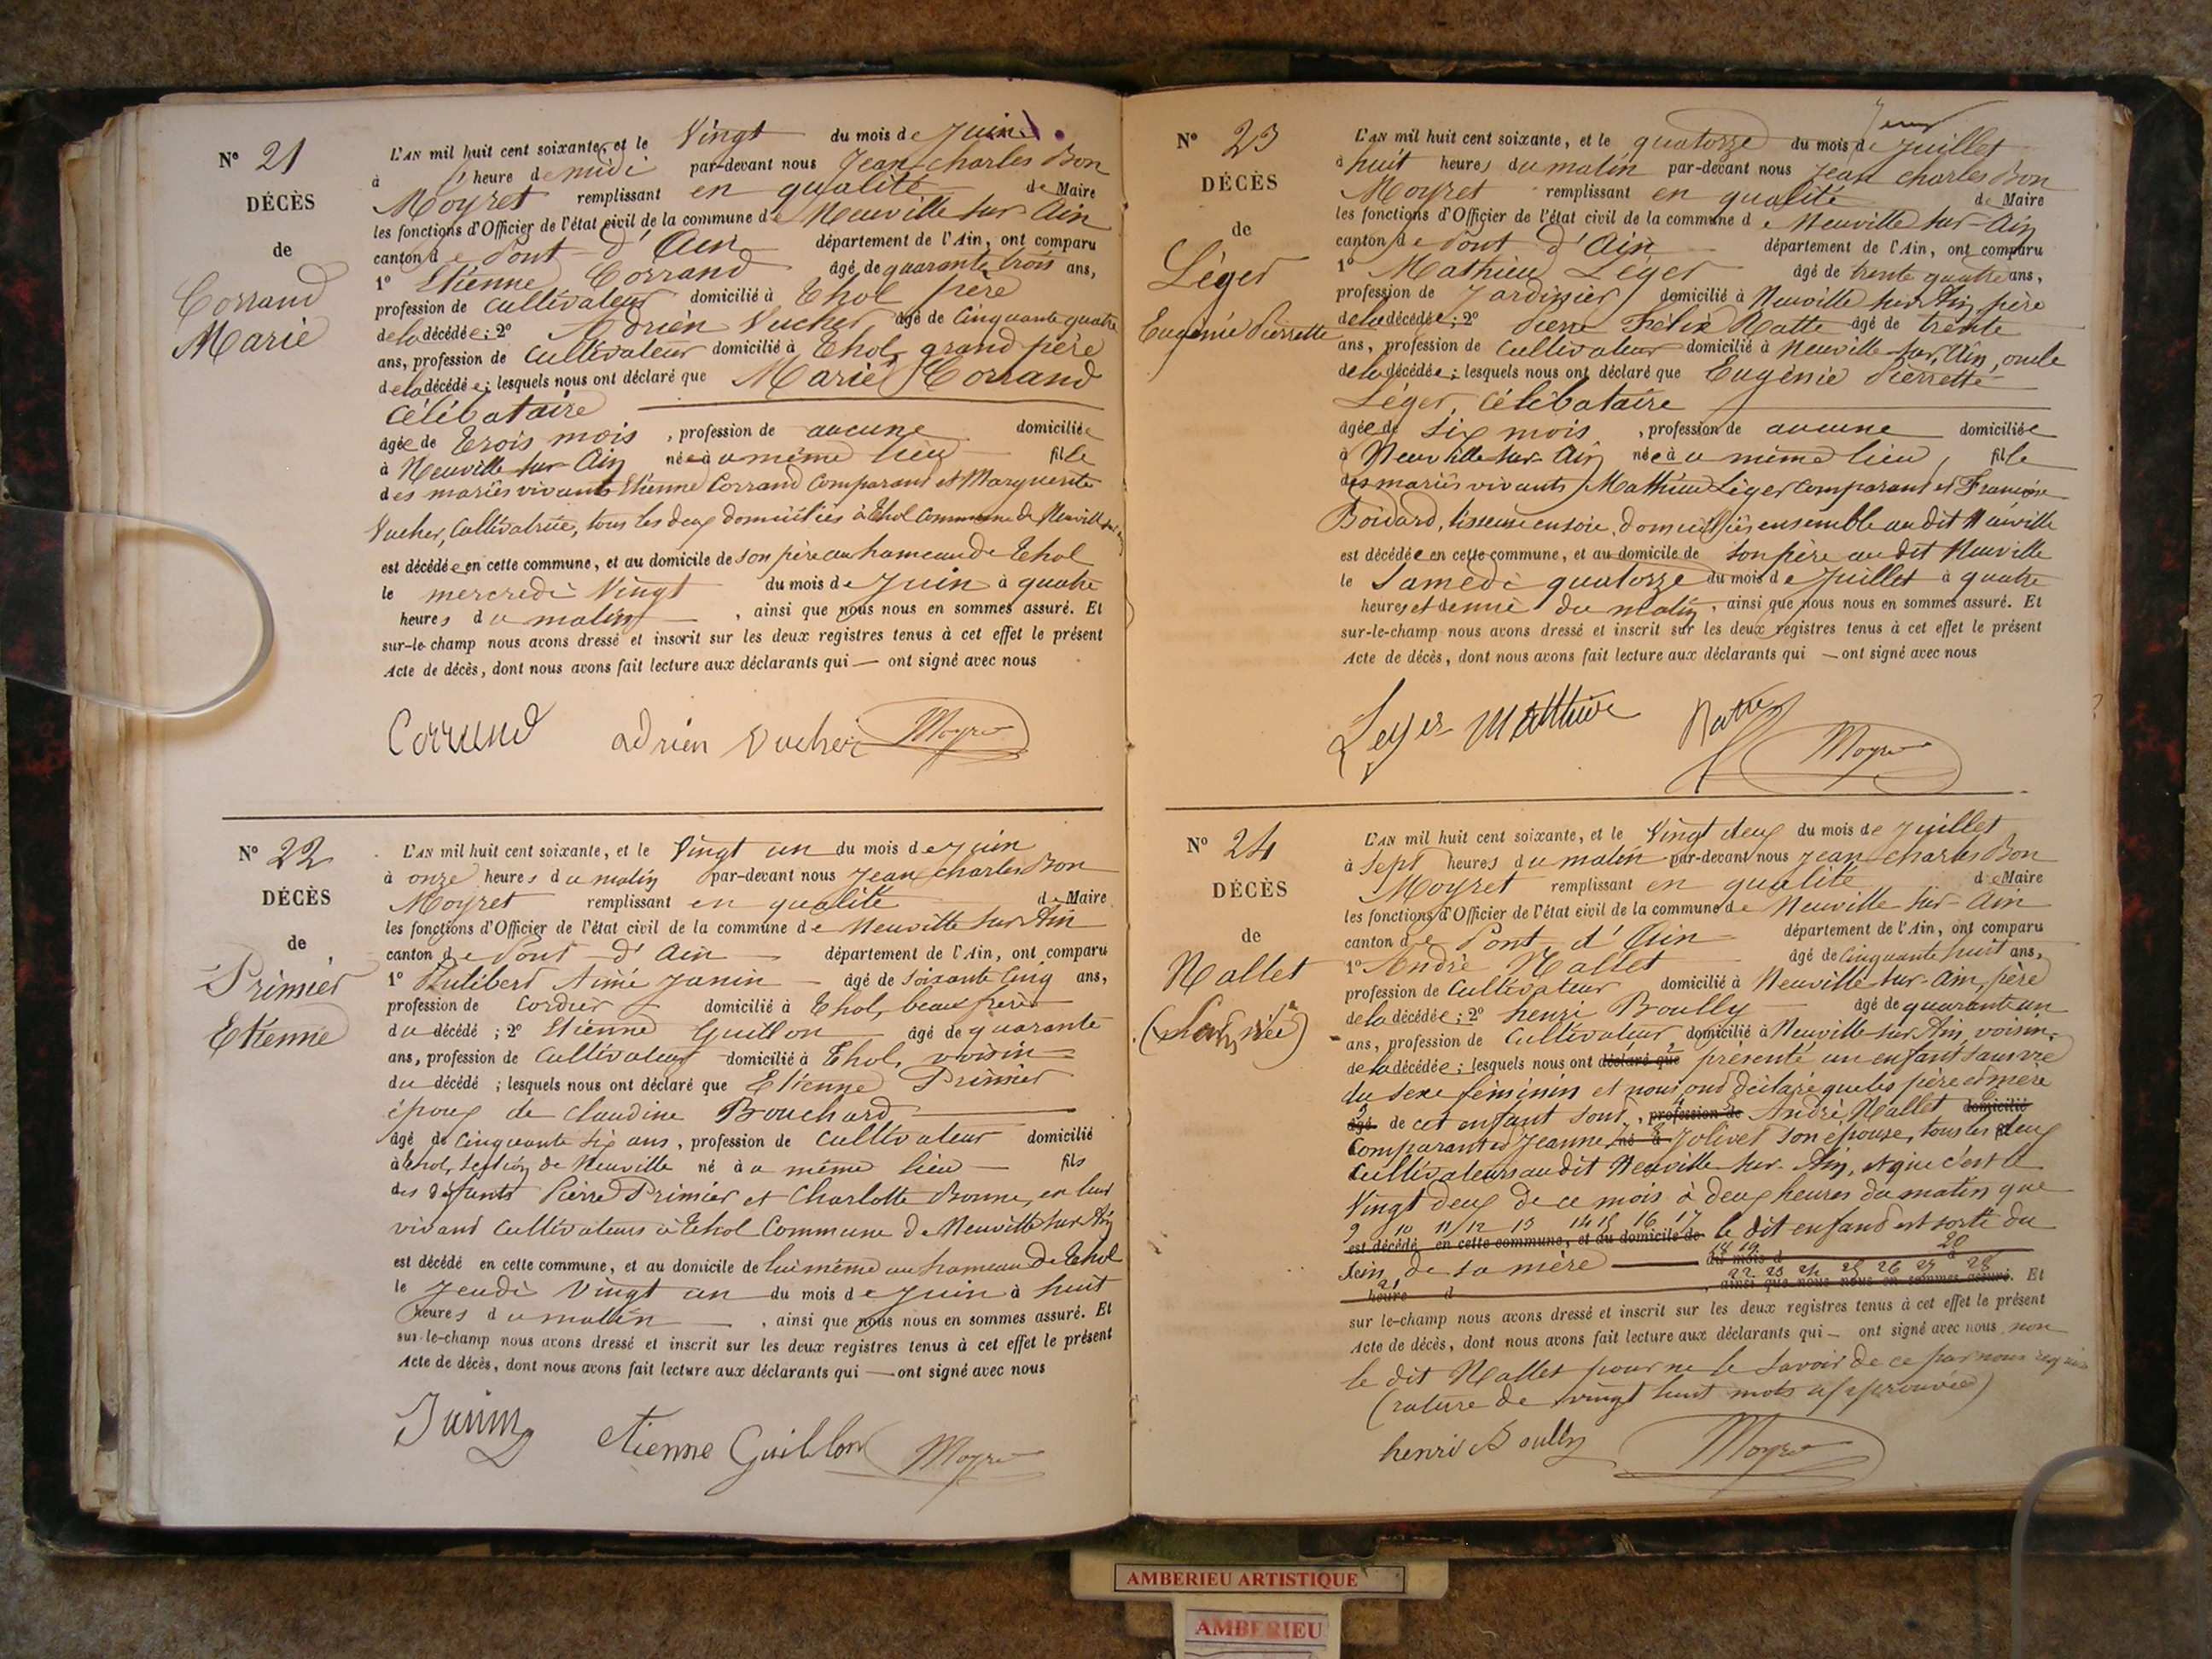 N° 21
DÉCÈS
de
Corrand
Marie
L'AN mil huit cent soixante, et le Vingt du mois de Juin
à heure de midi par-devant nous Jean Charles Bon
Moyret remplissant en qualité de Maire
les fonctions d'Officier de l'état civil de la commune de Neuville sur Ain
canton de Pont d'Ain département de l'Ain, ont comparu
1° Etienne Corrand âgé de quarante trois ans,
profession de Cultivateur domicilié à Thol père
de la décédée; 2° Adrien Vucher âgé de Cinquante quatre
ans, profession de Cultivateur domicilié à Thol, grand père
de la décédée; lesquels nous ont déclaré que Marie Corrand
Célibataire
âgée de trois mois, profession de aucune domiciliée
à Neuville sur Ain née au même lieu fille
des mariés vivants Etienne Corrand Comparant et Marguerite
Vucher, Cultivatrice, tous les deux domiciliés à Thol Commune de Neuville sur Ain
est décédée en cette commune, et au domicile de son père au hameau de Thol
le mercredi Vingt du mois de Juin à quatre
heures du matin, ainsi que nous nous en sommes assuré. Et
sur-le-champ nous avons dressé et inscrit sur les deux registres tenus à cet effet le présent
Acte de décès, dont nous avons fait lecture aux déclarants qui — ont signé avec nous
Corrand adrien vucher Moyret
N° 22
DÉCÈS
de
Primier
Etienne
L'AN mil huit cent soixante, et le Vingt un du mois de Juin
à onze heures du matin par-devant nous Jean Charles Bon
Moyret remplissant en qualité de Maire
les fonctions d'Officier de l'état civil de la commune de Neuville sur Ain
canton de Pont d'Ain département de l'Ain, ont comparu
1° Philibert Aimé Janin âgé de soixante Cinq ans,
profession de Cordier domicilié à Thol, beau père
du décédé; 2° Etienne Guillon âgé de quarante
ans, profession de Cultivateur domicilié à Thol, voisin
du décédé; lesquels nous ont déclaré que Etienne Primier
époux de Claudine Brouchard
âgé de Cinquante six ans, profession de Cultivateur domicilié
à Thol, section de Neuville né au même lieu fils
des défunts Pierre Primier et Charlotte Bonne, en leur
vivant Cultivateurs à Thol Commune de Neuville sur Ain
est décédé en cette commune, et au domicile de lui même au hameau de Thol
le Jeudi Vingt un du mois de Juin à huit
heures du matin, ainsi que nous nous en sommes assuré. Et
sur-le-champ nous avons dressé et inscrit sur les deux registres tenus à cet effet le présent
Acte de décès, dont nous avons fait lecture aux déclarants qui — ont signé avec nous
Janin etienne Guillon Moyret
N° 23
DÉCÈS
de
Léger
Eugénie Pierrette
L'AN mil huit cent soixante, et le quatorze du mois de Juillet
à huit heures du matin par-devant nous Jean Charles Bon
Moyret remplissant en qualité de Maire
les fonctions d'Officier de l'état civil de la commune de Neuville sur Ain
canton de Pont d'Ain département de l'Ain, ont comparu
1° Mathieu Léger âgé de trente quatre ans,
profession de Jardinier domicilié à Neuville sur Ain, père
de la décédée; 2° Pierre Félix Ratte âgé de trente
ans, profession de Cultivateur domicilié à Neuville sur Ain, oncle
de la décédée; lesquels nous ont déclaré que Eugénie Pierrette
Léger, Célibataire
âgée de six mois, profession de aucune domiciliée
à Neuville sur Ain née au même lieu, fille
des mariés vivants Mathieu Léger Comparant et Françoise
Boidard, tisseuse en soie, domiciliés ensemble au dit Neuville
est décédée en cette commune, et au domicile de son père au dit Neuville
le Samedi quatorze du mois de Juillet à quatre
heures et demie du matin, ainsi que nous nous en sommes assuré. Et
sur-le-champ nous avons dressé et inscrit sur les deux registres tenus à cet effet le présent
Acte de décès, dont nous avons fait lecture aux déclarants qui — ont signé avec nous
Leger Matthieu Ratte
Moyret
N° 24
DÉCÈS
de
Nallet
L'AN mil huit cent soixante, et le Vingt deux du mois de Juillet
à Sept heures du matin par-devant nous Jean Charles Bon
Moyret remplissant en qualité de Maire
les fonctions d'Officier de l'état civil de la commune de Neuville sur Ain
canton de Pont d'Ain département de l'Ain, ont comparu
1° André Nallet âgé de Cinquante huit ans,
profession de Cultivateur domicilié à Neuville sur Ain, père
de la décédée; 2° henri Broully âgé de quarante un
ans, profession de Cultivateur, domicilié à Neuville sur Ain, voisin
de la décédée; lesquels nous ont déclaré que présenté un enfant sans vie
du sexe féminin et nous ont déclaré que les père et mère
âgé de cet enfant sont, profession de André Nallet domicilié
Comparant et Jeanne né à Jolivet son épouse, tous les deux
Cultivateurs au dit Neuville sur Ain, et que c'est le
Vingt deux de ce mois à deux heures du matin que
9 10 11 12 13 14 15 16 17
est décédé en cette commune, et au domicile de le dit enfant est sorti du
18 19 20
sein de sa mère du mois d à
21 22 23 24 25 26 27 28
heure d, ainsi que nous nous en sommes assuré. Et
sur le-champ nous avons dressé et inscrit sur les deux registres tenus à cet effet le présent
Acte de décès, dont nous avons fait lecture aux déclarants qui — ont signé avec nous non
le dit Nallet pour ne le savoir de ce par nous requis
(rature de vingt huit mots approuvée)
henri Boully Moyret
AMBERIEU ARTISTIQUE
AMBERIEU